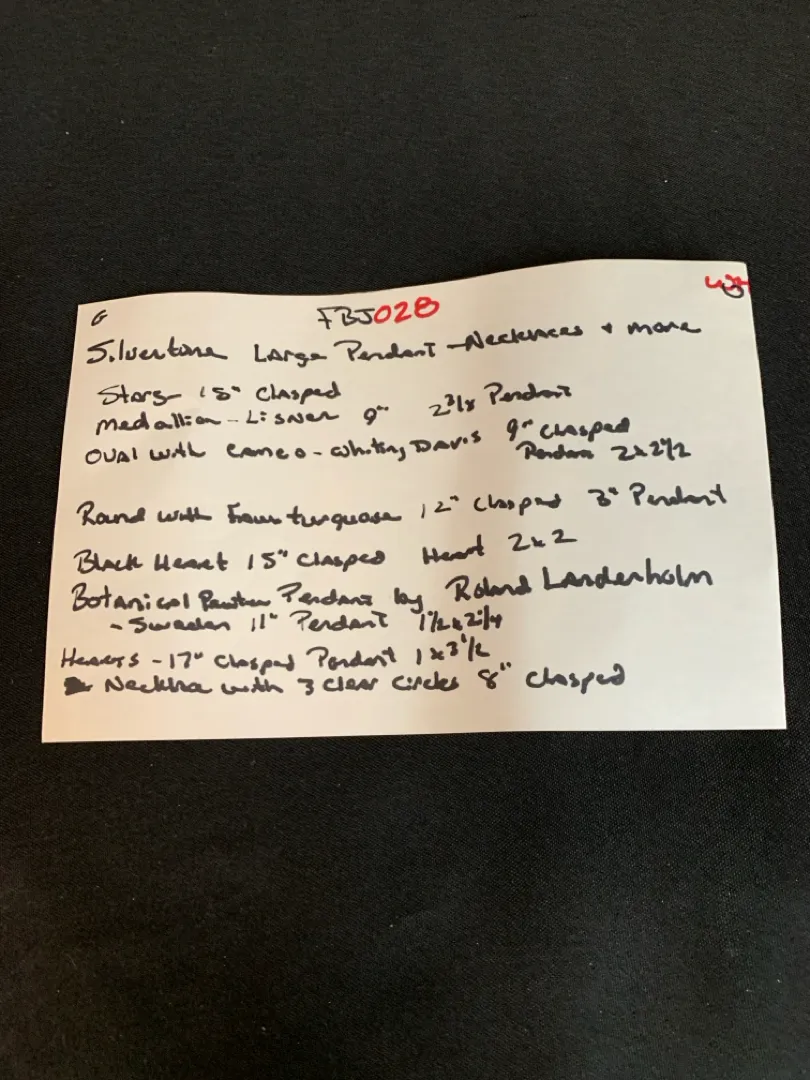 G FBJ028
Silvertone Large Pendant - Necklaces + more
Stars - 15" Clasped
Medallion - Lisner 9" 2 3/8 Pendant
Oval with Cameo - Whiting Davis 9" Clasped
Pendant 2x2 1/2
Round with Faux turquoise 12" Clasped 3" Pendant
Black Heart 15" Clasped Heart 2x2
Botanical Pewter Pendant by Roland Landerholm
- Sweden 11" Pendant 1 1/2 x 2 1/4
Hearts - 17" Clasped Pendant 1x3 1/2
Necklace with 3 clear circles 8" Clasped